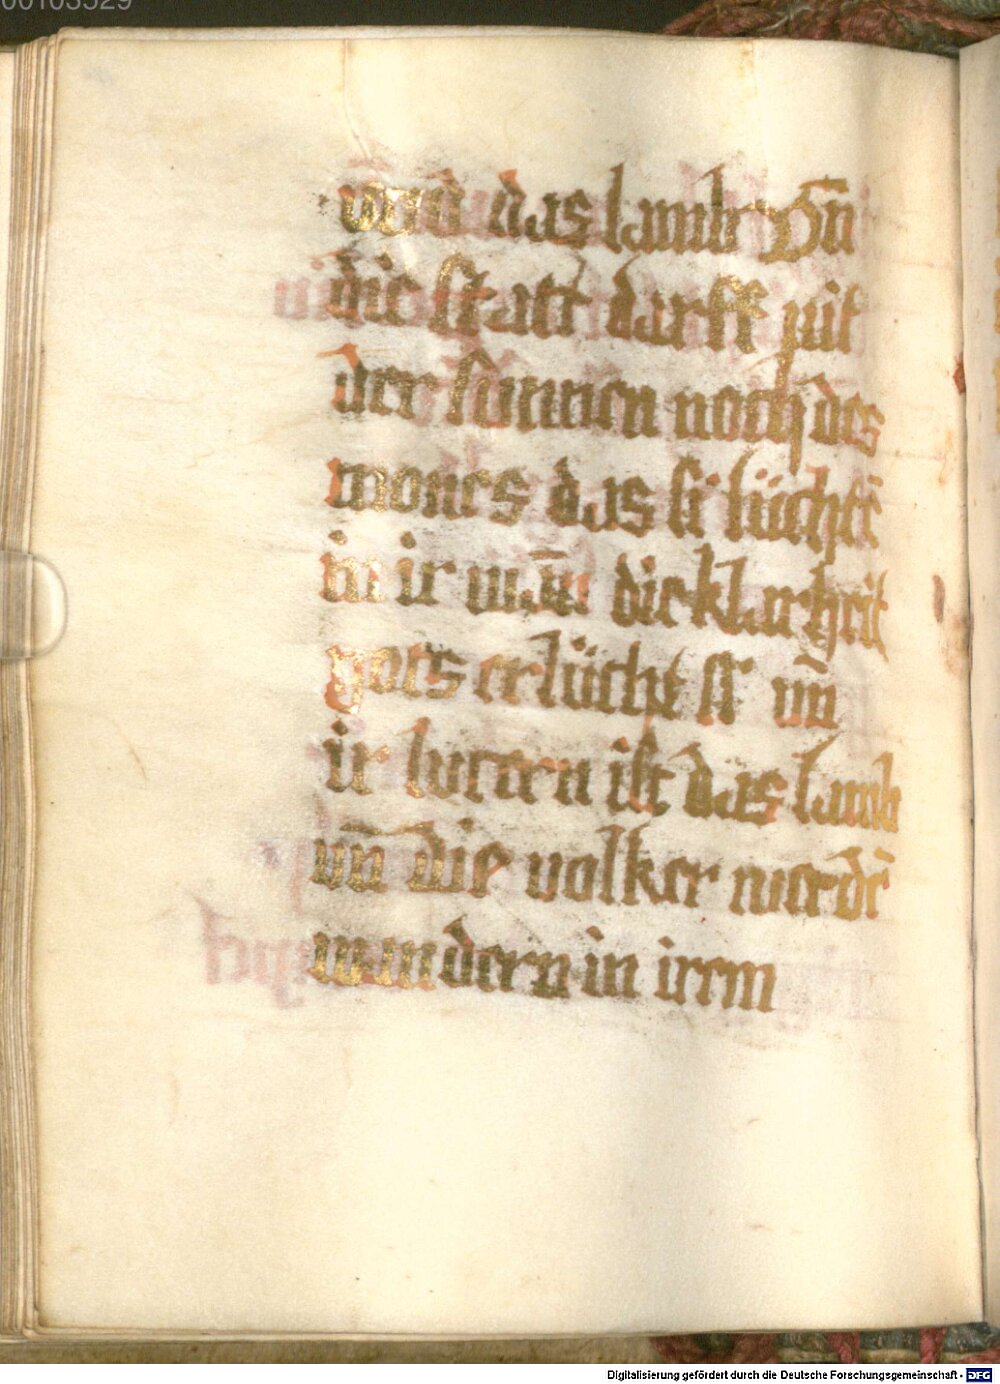 00103529
vnd das lamb Vn̄
die statt darff nit
der sunnen noch des
mones das si lüchtē
in ir wān die klarheit
gots erlücht si vn̄
ir lucern ist das lamb
vn̄ die volker werdē
wandern in irem
Digitalisierung gefördert durch die Deutsche Forschungsgemeinschaft - DFG